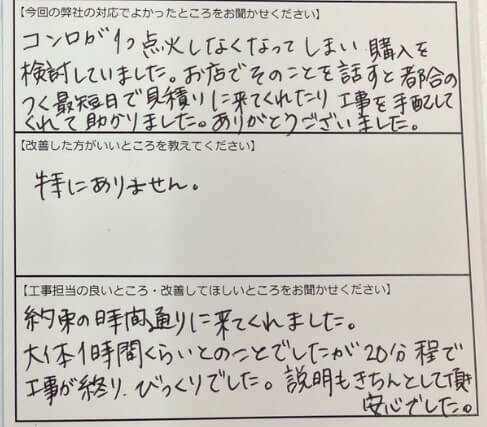 【今回の弊社の対応でよかったところをお聞かせください】
コンロが1つ点火しなくなってしまい購入を
検討していました。お店でそのことを話すと都合の
つく最短日で見積りに来てくれたり工事を手配して
くれて助かりました。ありがとうございました。
【改善した方がいいところを教えてください】
特にありません。
【工事担当の良いところ・改善してほしいところをお聞かせください】
約束の時間通りに来てくれました。
大体1時間くらいとのことでしたが20分程で
工事が終り、びっくりでした。説明もきちんとして頂き
安心でした。